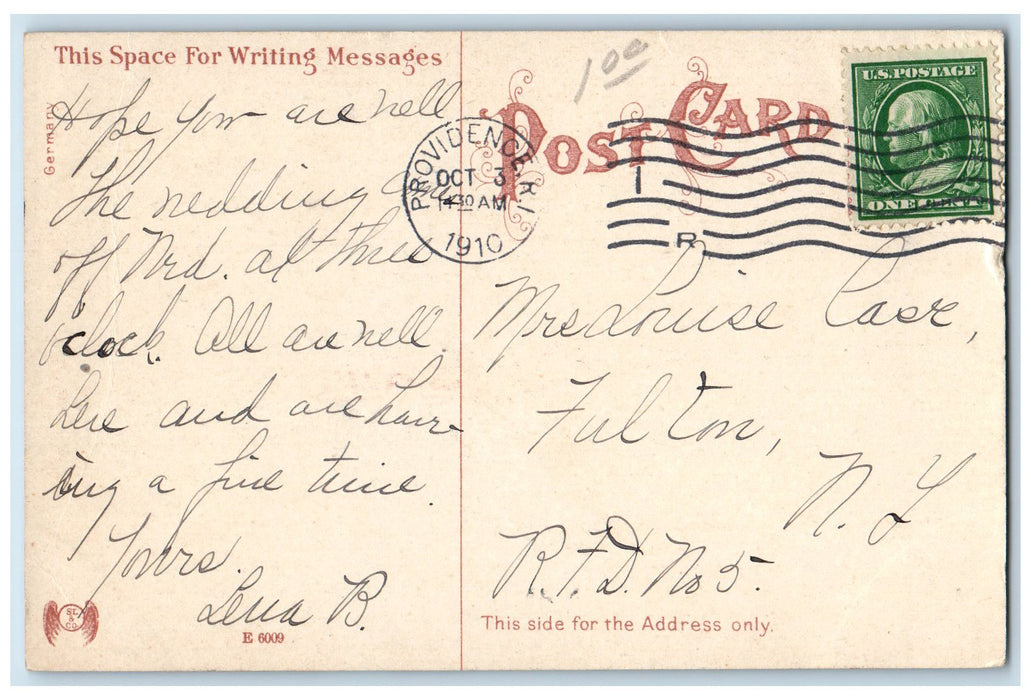 This Space For Writing Messages
Germany
Hope you are well
The wedding
off Wed. at three
o'clock. All are well
here and are hav-
ing a fine time.
Yours.
Lena B.
SL & CO.
E 6009
1 00
POST CARD
PROVIDENCE, R.I.
OCT 3
30 AM
1910
1
R
U.S. POSTAGE
ONE CENT
Mrs Louise Case,
Fulton,
N.Y
R.F.D. No 5.
This side for the Address only.